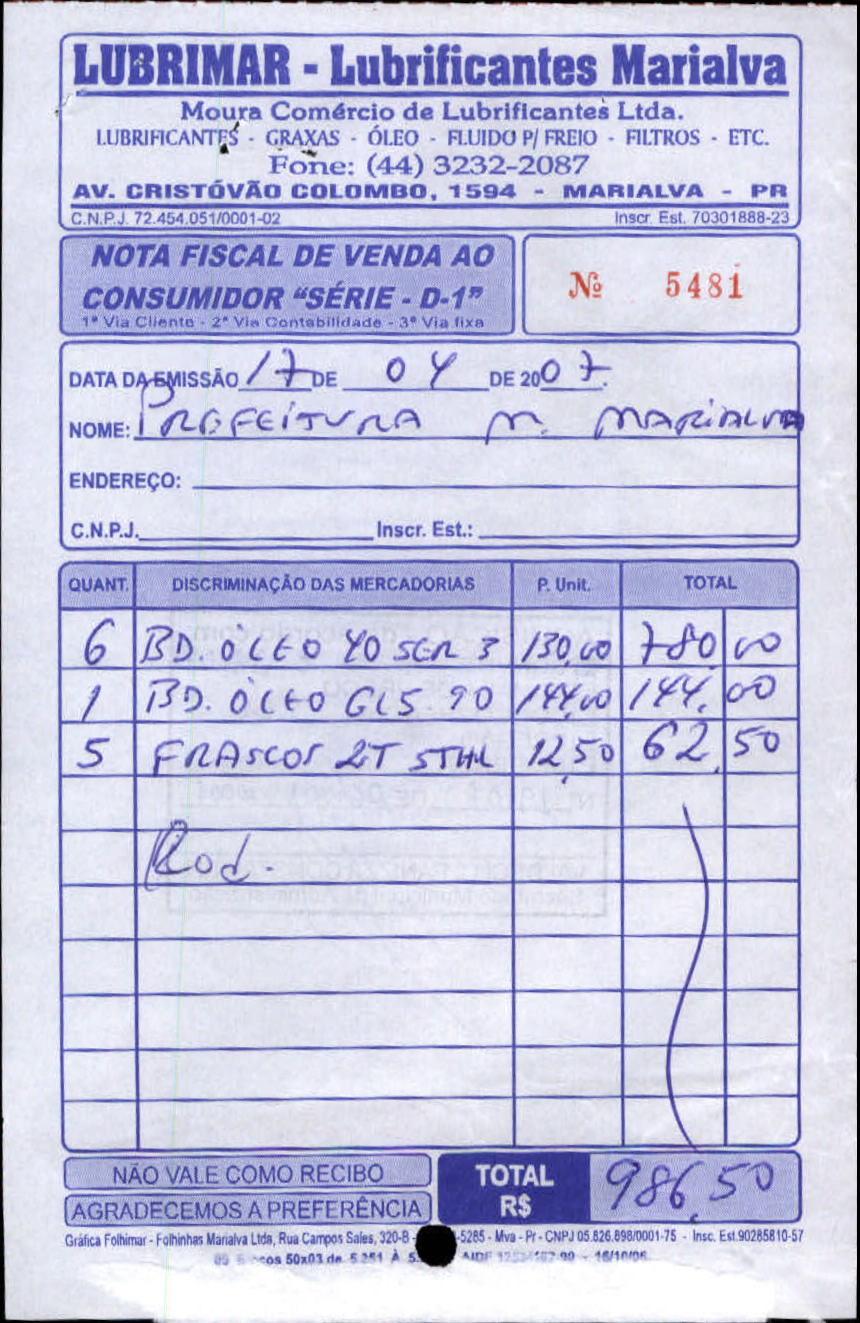 LUBRIMAR - Lubrificantes Marialva
Moura Comércio de Lubrificantes Ltda.
LUBRIFICANTES - GRAXAS - ÓLEO - FLUIDO P/ FREIO - FILTROS - ETC.
Fone: (44) 3232-2087
AV. CRISTÓVÃO COLOMBO, 1594 - MARIALVA - PR
C.N.P.J. 72.454.051/0001-02 Inscr. Est. 70301888-23
NOTA FISCAL DE VENDA AO
CONSUMIDOR "SÉRIE - D-1"
1ª Via Cliente - 2ª Via Contabilidade - 3ª Via fixa
Nº 5481
DATA DA EMISSÃO 17 DE 04 DE 2007.
NOME: PREFEITURA M. MARIALVA
ENDEREÇO:
C.N.P.J. Inscr. Est.:
QUANT. DISCRIMINAÇÃO DAS MERCADORIAS P. Unit. TOTAL
6 BD. ÓLEO 40 SER 3 130,00 780,00
1 BD. ÓLEO GL5 90 144,00 144,00
5 FRASCOS 2T STHL 12,50 62,50
Rod.
NÃO VALE COMO RECIBO
AGRADECEMOS A PREFERÊNCIA
TOTAL R$ 986,50
Gráfica Folhimar - Folhinhas Marialva Ltda, Rua Campos Sales, 320-B - -5285 - Mva - Pr - CNPJ 05.826.898/0001-75 - Insc. Est.90285810-57
50x03 de 5.251 À AIDF - 16/10/06.